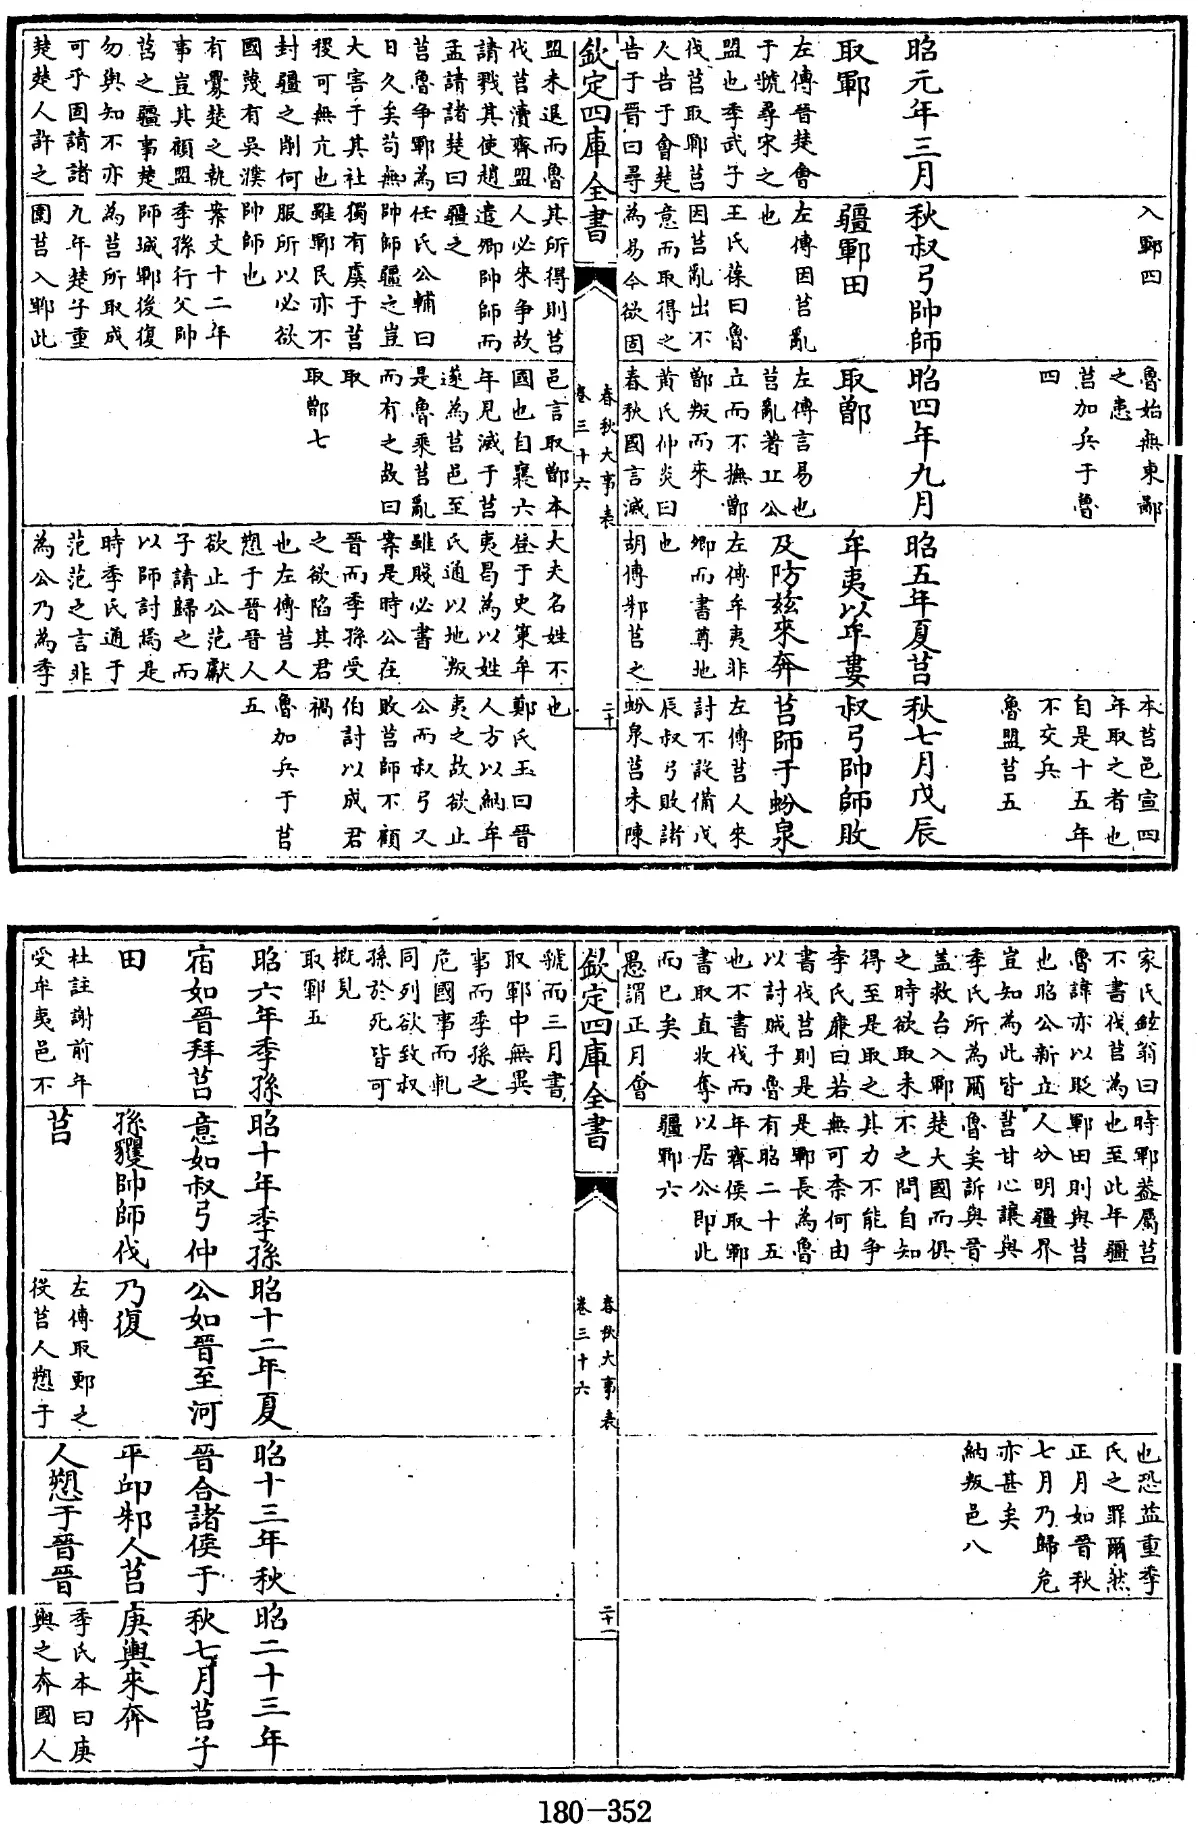 昭元年三月
取鄆
左傳晉楚會
于虢尋宋之
盟也季武子
伐莒取鄆莒
人告于會楚
告于晉曰尋
入鄆四
秋叔弓帥師
疆鄆田
左傳因莒亂
也
王氏葆曰魯
因莒亂出不
意而取得之
為易今欲固
魯始無東鄙
之患
莒加兵于魯
四
昭四年九月
取鄫
左傳言易也
莒亂著丘公
立而不撫鄫
鄫叛而來
黃氏仲炎曰
春秋國言滅
昭五年夏莒
牟夷以牟婁
及防茲來奔
左傳牟夷非
卿而書尊地
也
胡傳邾莒之
本莒邑宣四
年取之者也
自是十五年
不交兵
魯盟莒五
秋七月戊辰
叔弓帥師敗
莒師于蚡泉
左傳莒人來
討不設備戊
辰叔弓敗諸
蚡泉莒未陳
欽定四庫全書
春秋大事表
卷三十六
二十
盟未退而魯
伐莒瀆齊盟
請戮其使趙
孟請諸楚曰
莒魯爭鄆為
日久矣苟無
大害于其社
稷可無亢也
封疆之削何
國蔑有吳濮
有釁楚之執
事豈其顧盟
莒之疆事楚
勿與知不亦
可乎固請諸
楚楚人許之
其所得則莒
人必來爭故
遣卿帥師而
疆之
任氏公輔曰
帥師疆之豈
獨有虞于莒
雖鄆民亦不
服所以必欲
帥師也
案文十二年
季孫行父帥
師城鄆後復
為莒所取成
九年楚子重
圍莒入鄆此
邑言取鄫本
國也自襄六
年見滅于莒
遂為莒邑至
是魯乘莒亂
而有之故曰
取
取鄫七
大夫名姓不
登于史策牟
夷曷為以姓
氏通以地叛
雖賤必書
案是時公在
晉而季孫受
之欲陷其君
也左傳莒人
愬于晉晉人
欲止公范獻
子請歸之而
以師討焉是
時季氏通于
范范之言非
為公乃為季
也
鄭氏玉曰晉
人方以納牟
夷之故欲止
公而叔弓又
敗莒師不顧
伯討以成君
禍
魯加兵于莒
五
家氏鉉翁曰
不書伐莒為
魯諱亦以貶
也昭公新立
豈知為此皆
季氏所為爾
蓋救台入鄆
之時欲取未
得至是取之
李氏廉曰若
書伐莒則是
以討賊子魯
也不書伐而
書取直收奪
而已矣
愚謂正月會
時鄆蓋屬莒
也至此年疆
鄆田則與莒
人分明疆界
莒甘心讓與
魯矣訴與晉
楚大國而俱
不之問自知
其力不能爭
無可柰何由
是鄆長為魯
有昭二十五
年齊侯取鄆
以居公即此
疆鄆六
也恐益重季
氏之罪爾然
正月如晉秋
七月乃歸危
亦甚矣
納叛邑八
欽定四庫全書
春秋大事表
卷三十六
二十一
虢而三月書
取鄆中無異
事而季孫之
危國事而軋
同列欲致叔
孫於死皆可
概見
取鄆五
昭六年季孫
宿如晉拜莒
田
杜註謝前年
受牟夷邑不
昭十年季孫
意如叔弓仲
孫貜帥師伐
莒
昭十二年夏
公如晉至河
乃復
左傳取郠之
役莒人愬于
昭十三年秋
晉合諸侯于
平丘邾人莒
人愬于晉晉
昭二十三年
秋七月莒子
庚輿來奔
季氏本曰庚
輿之奔國人
180-352